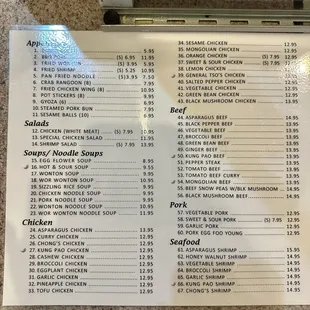 App
5.95
2. EGG (5) 6.95 11.95
3. FRIED WONTON (5) 3.95
4. FRIED SHRIMP (5) 5.25 10.95
5. PAN FRIED NOODLE (5) 3.95 7.50
6. CRAB RANGOON (8) 8.95
7. FRIED CHICKEN WING (8) 10.95
8. POT STICKERS (8) 9.95
9. GYOZA (6) 9.95
10. STEAMED PORK BUN 7.95
11. SESAME BALLS (10) 6.95
Salads
12. CHICKEN (WHITE MEAT) (5) 7.95 10.95
13. SPECIAL CHICKEN SALAD 11.95
14. SHRIMP SALAD (5) 7.95 13.95
Soups/Noodle Soups
15. EGG FLOWER SOUP 8.95
16. HOT & SOUR SOUP 9.95
17. WONTON SOUP 9.95
18. WOR WONTON SOUP 10.95
19. SIZZLING RICE SOUP 10.95
20. CHICKEN NOODLE SOUP 10.95
21. PORK NOODLE SOUP 10.95
22. WONTON NOODLE SOUP 10.95
23. WOR WONTON NOODLE SOUP 11.95
Chicken
24. ASPARAGUS CHICKEN 13.95
25. CURRY CHICKEN 12.95
26. CHONG'S CHICKEN 12.95
27. KUNG PAO CHICKEN 12.95
28. CASHEW CHICKEN 12.95
29. BROCCOLI CHICKEN 12.95
30. EGGPLANT CHICKEN 12.95
31. GARLIC CHICKEN 12.95
32. PINEAPPLE CHICKEN 12.95
33. TOFU CHICKEN 12.95
34. SESAME CHICKEN 12.95
35. MONGOLIAN CHICKEN 12.95
36. ORANGE CHICKEN (5) 7.95 12.95
37. SWEET & SOUR CHICKEN (5) 7.95 12.95
38. LEMON CHICKEN 12.95
39. GENERAL TSO'S CHICKEN 12.95
40. SALTED PEPPER CHICKEN 12.95
41. VEGETABLE CHICKEN 12.95
42. GREEN BEAN CHICKEN 12.95
43. BLACK MUSHROOM CHICKEN 13.95
Beef
44. ASPARAGUS BEEF 14.95
45. BLACK PEPPER BEEF 13.95
46. VEGETABLE BEEF 13.95
47. BROCCOLI BEEF 13.95
48. GREEN BEAN BEEF 13.95
49. GINGER BEEF 13.95
50. KUNG PAO BEEF 13.95
51. PEPPER STEAK 13.95
52. TOMATO BEEF 13.95
53. TOMATO BEEF CURRY 13.95
54. MONGOLIAN BEEF 13.95
55. BEEF SNOW PEAS W/BLK MUSHROOM 14.95
56. BLACK MUSHROOM BEEF 14.95
Pork
57. VEGETABLE PORK 12.95
58. SWEET & SOUR PORK (5) 7.95 12.95
59. GARLIC PORK 12.95
60. PORK EGG FOO YOUNG 12.95
Seafood
61. ASPARAGUS SHRIMP 15.95
62. HONEY WALNUT SHRIMP 14.95
63. VEGETABLE SHRIMP 14.95
64. BROCCOLI SHRIMP 14.95
65. GARLIC SHRIMP 14.95
66. KUNG PAO SHRIMP 14.95
67. CHONG'S SHRIMP 14.95